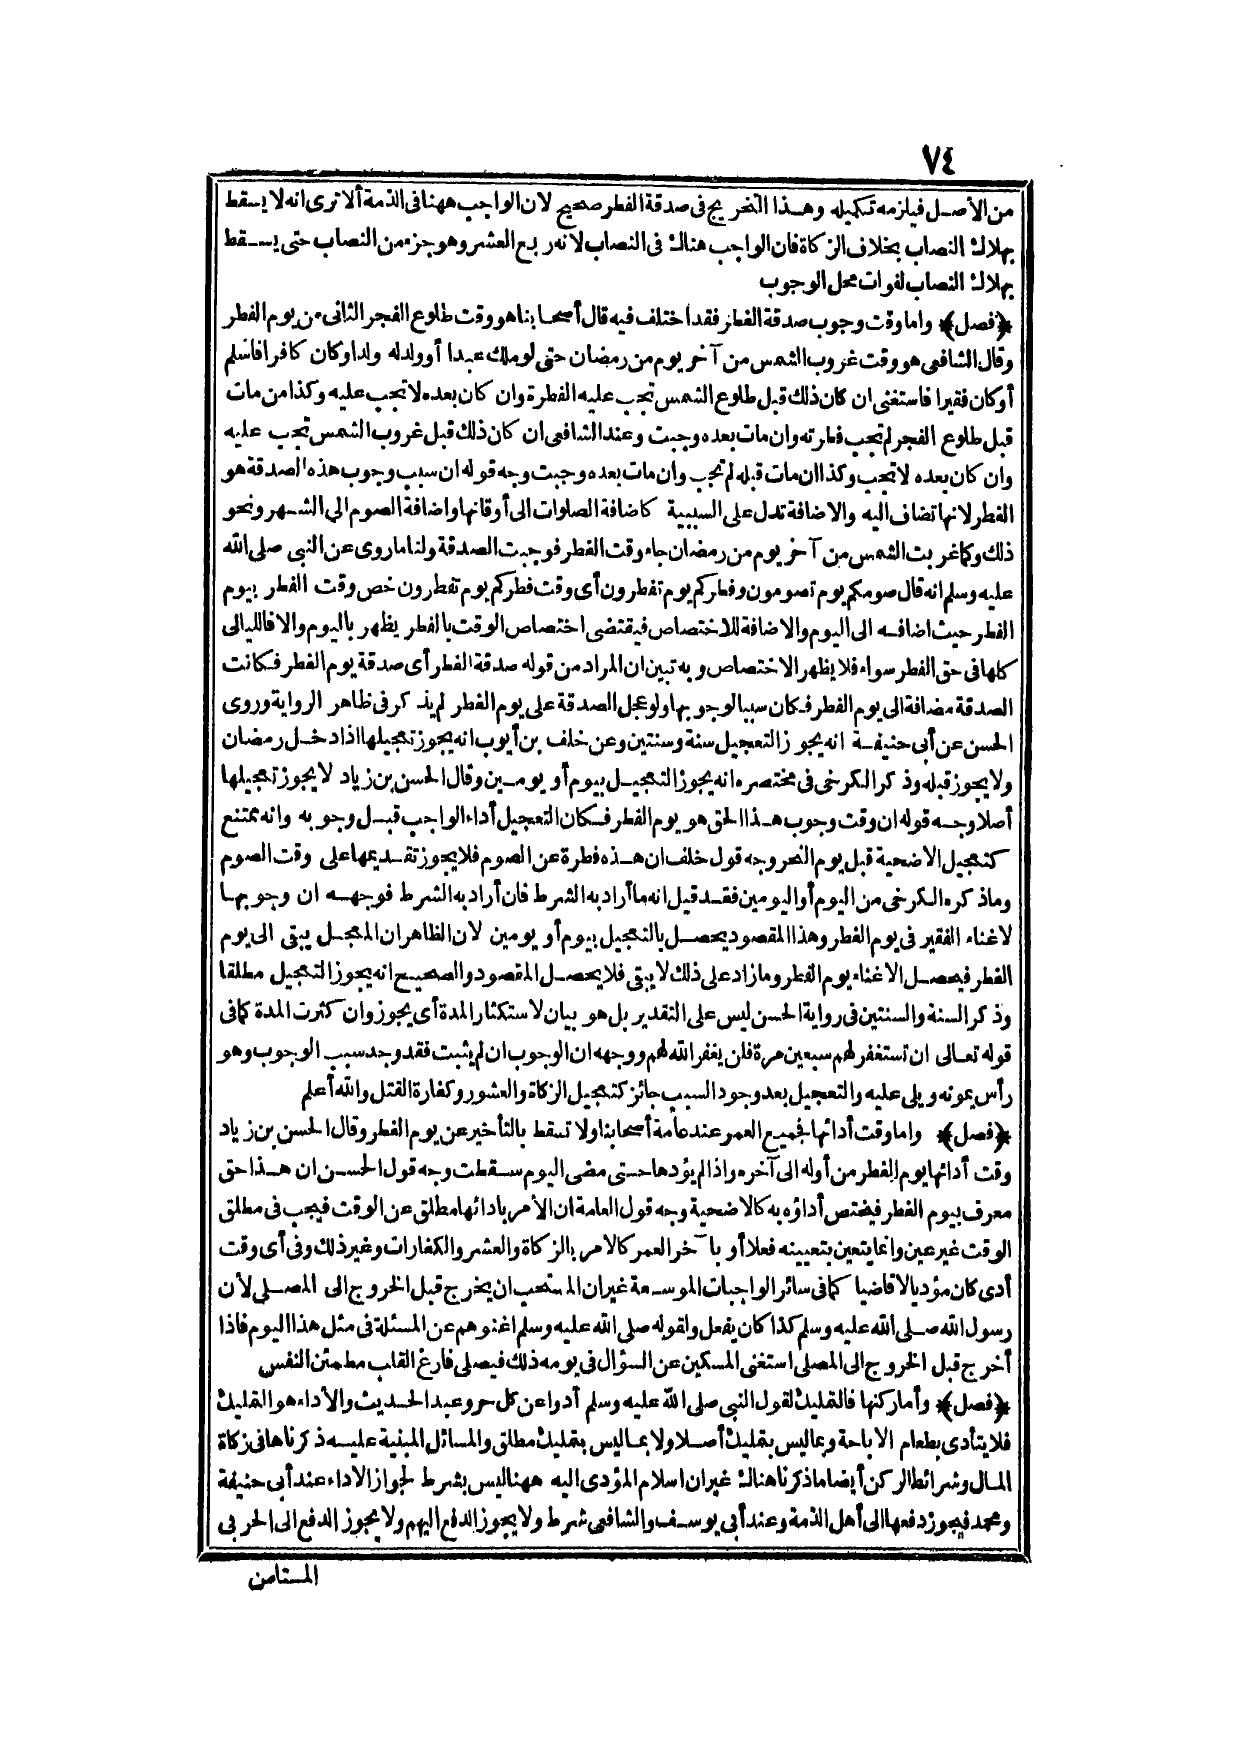 ٧٤
من الأصل فيلزمه تكميله وهذا التخريج فى صدقة الفطر صحيح لان الواجب ههنا فى الذمة ألا ترى انه لا يسقط
بهلاك النصاب بخلاف الزكاة فان الواجب هناك فى النصاب لانه ربع العشر وهو جزء من النصاب حتى يسقط
بهلاك النصاب لفوات محل الوجوب
﴿فصل﴾ واما وقت وجوب صدقة الفطر فقد اختلف فيه قال أصحابنا هو وقت طلوع الفجر الثانى من يوم الفطر
وقال الشافعى هو وقت غروب الشمس من آخر يوم من رمضان حتى لو ملك عبدا أو ولد له ولد أو كان كافرا فاسلم
أو كان فقيرا فاستغنى ان كان ذلك قبل طلوع الشمس تجب عليه الفطرة وان كان بعده لا تجب عليه وكذا من مات
قبل طلوع الفجر لم تجب فطرته وان مات بعده وجبت وعند الشافعى ان كان ذلك قبل غروب الشمس تجب عليه
وان كان بعده لا تجب وكذا ان مات قبله لم تجب وان مات بعده وجبت وجه قوله ان سبب وجوب هذه الصدقة هو
الفطر لانها تضاف اليه والاضافة تدل على السببية كاضافة الصلوات الى أوقاتها واضافة الصوم الى الشهر ونحو
ذلك وكما غربت الشمس من آخر يوم من رمضان جاء وقت الفطر فوجبت الصدقة ولنا ما روى عن النبى صلى الله
عليه وسلم انه قال صومكم يوم تصومون وفطركم يوم تفطرون أى وقت فطركم يوم تفطرون خص وقت الفطر بيوم
الفطر حيث اضافه الى اليوم والاضافة للاختصاص فيقتضى اختصاص الوقت بالفطر يظهر باليوم والا فالليالى
كلها فى حق الفطر سواء فلا يظهر الاختصاص وبه تبين ان المراد من قوله صدقة الفطر أى صدقة يوم الفطر فكانت
الصدقة مضافة الى يوم الفطر فكان سببا لوجوبها ولو عجل الصدقة على يوم الفطر لم يذكر فى ظاهر الرواية وروى
الحسن عن أبى حنيفة انه يجوز التعجيل سنة وسنتين وعن خلف بن أيوب انه يجوز تعجيلها اذا دخل رمضان
ولا يجوز قبله وذكر الكرخى فى مختصره انه يجوز التعجيل بيوم أو يومين وقال الحسن بن زياد لا يجوز تعجيلها
أصلا وجه قوله ان وقت وجوب هذا الحق هو يوم الفطر فكان التعجيل أداء الواجب قبل وجوبه وانه ممتنع
كتعجيل الاضحية قبل يوم النحر وجه قول خلف ان هذه فطرة عن الصوم فلا يجوز تقديمها على وقت الصوم
وما ذكره الكرخى من اليوم أو اليومين فقد قيل انه ما أراد به الشرط فان أراد به الشرط فوجهه ان وجوبها
لاغناء الفقير فى يوم الفطر وهذا المقصود يحصل بالتعجيل بيوم أو يومين لان الظاهر ان المعجل يبقى الى يوم
الفطر فيحصل الاغناء يوم الفطر وما زاد على ذلك لا يبقى فلا يحصل المقصود والصحيح انه يجوز التعجيل مطلقا
وذكر السنة والسنتين فى رواية الحسن ليس على التقدير بل هو بيان لاستكثار المدة أى يجوز وان كثرت المدة كما فى
قوله تعالى ان تستغفر لهم سبعين مرة فلن يغفر الله لهم ووجهه ان الوجوب ان لم يثبت فقد وجد سبب الوجوب وهو
رأس يمونه ويلى عليه والتعجيل بعد وجود السبب جائز كتعجيل الزكاة والعشور وكفارة القتل والله أعلم
﴿فصل﴾ واما وقت أدائها فجميع العمر عند عامة أصحابنا ولا تسقط بالتأخير عن يوم الفطر وقال الحسن بن زياد
وقت أدائها يوم الفطر من أوله الى آخره واذا لم يؤدها حتى مضى اليوم سقطت وجه قول الحسن ان هذا حق
معرف بيوم الفطر فيختص أداؤه به كالاضحية وجه قول العامة ان الأمر بادائها مطلق عن الوقت فيجب فى مطلق
الوقت غير عين وانما يتعين بتعيينه فعلا أو بآخر العمر كالامر بالزكاة والعشر والكفارات وغير ذلك وفى أى وقت
أدى كان مؤديا لا قاضيا كما فى سائر الواجبات الموسعة غير ان المستحب ان يخرج قبل الخروج الى المصلى لأن
رسول الله صلى الله عليه وسلم كذا كان يفعل ولقوله صلى الله عليه وسلم اغنوهم عن المسئلة فى مثل هذا اليوم فاذا
أخرج قبل الخروج الى المصلى استغنى المسكين عن السؤال فى يومه ذلك فيصلى فارغ القلب مطمئن النفس
﴿فصل﴾ وأما ركنها فالتمليك لقول النبى صلى الله عليه وسلم أدوا عن كل حر وعبد الحديث والأداء هو التمليك
فلا يتأدى بطعام الاباحة وبما ليس بتمليك أصلا ولا بما ليس بتمليك مطلق والمسائل المبنية عليه ذكرناها فى زكاة
المال وشرائط الركن أيضا ما ذكرنا هناك غير ان اسلام المؤدى اليه ههنا ليس بشرط لجواز الاداء عند أبى حنيفة
ومحمد فيجوز دفعها الى أهل الذمة وعند أبى يوسف والشافعى شرط ولا يجوز الدفع اليهم ولا يجوز الدفع الى الحربى
المستامن